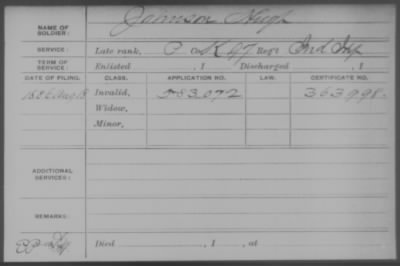 NAME OF SOLDIER: Johnson Hugh
SERVICE: Late rank, P Co. K 47 Reg't Ind Inf
TERM OF SERVICE: Enlisted , 1 Discharged , 1
DATE OF FILING. CLASS. APPLICATION NO. LAW. CERTIFICATE NO.
1886 Aug 18 Invalid, 583,072 363998.
Widow,
Minor,
ADDITIONAL SERVICES:
REMARKS:
Died , 1 , at